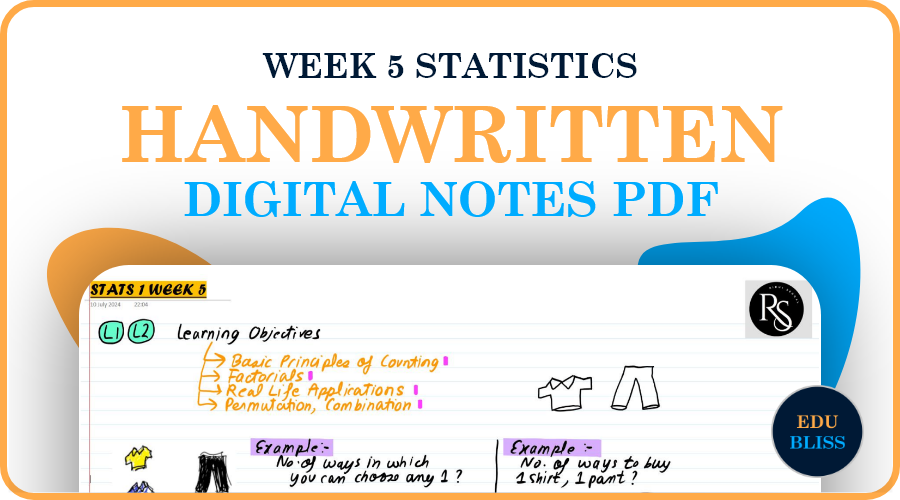 WEEK 5 STATISTICS
HANDWRITTEN
DIGITAL NOTES PDF
STATS 1 WEEK 5
10 July 2024 22:04
RS
L1 L2 Learning Objectives
Basic Principles of Counting
Factorials
Real Life Applications
Permutation, Combination
EDU
BLISS
Example:-
No. of ways in which
you can choose any 1 ?
Example :-
No. of ways to buy
1 shirt, 1 pant ?